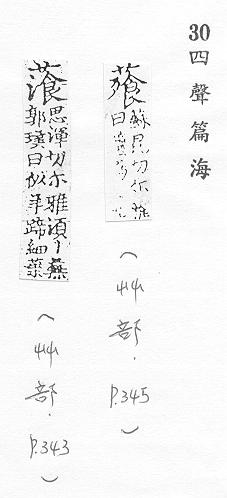 30四聲篇海
蕵
蘇昆切尔
曰
(艸部．P.345)
思渾切尔雅湏丨蕪
郭璞曰似羊蹄細葉
(艸部．P.343)